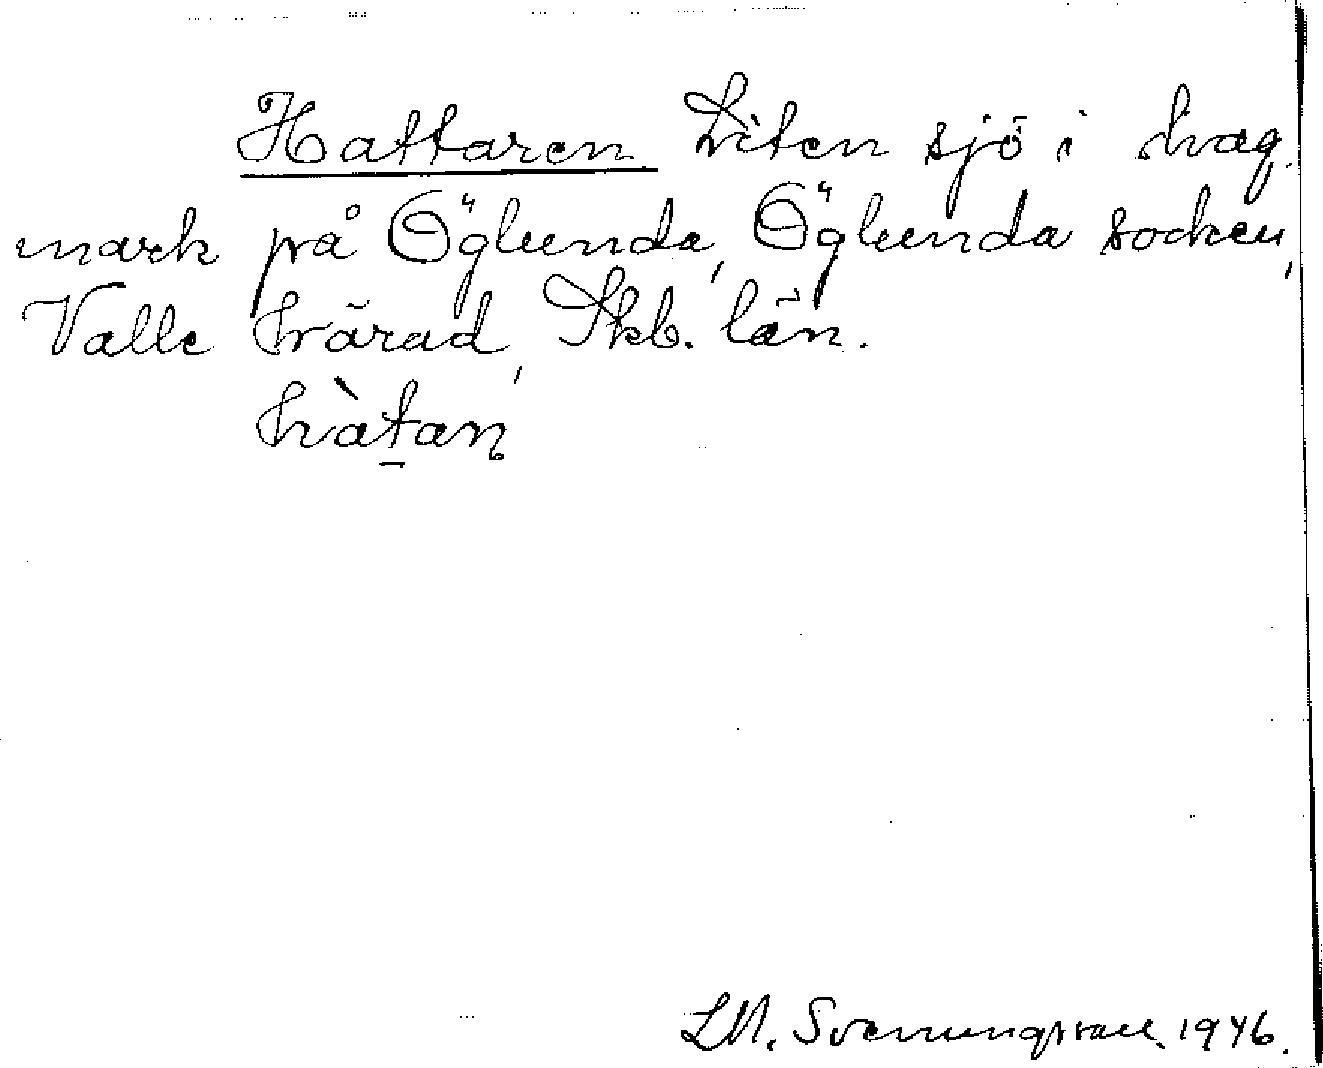 Hattaren Liten sjö i hag-
mark på Öglunda, Öglunda socken,
Valle härad, Skb. län.
hàtan
LM. Svenungsson 1946.